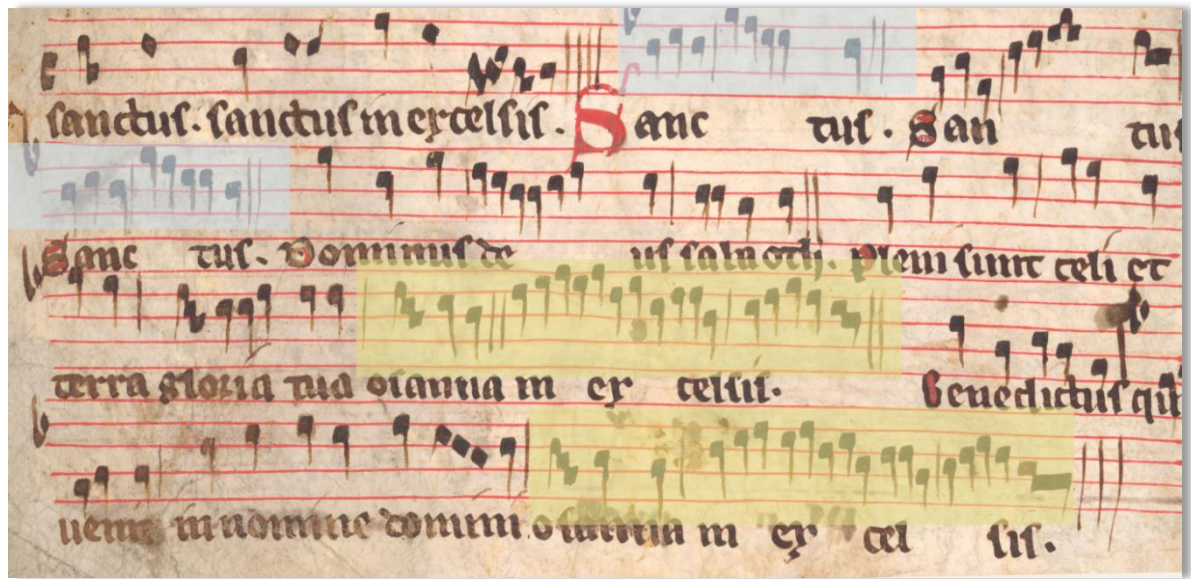 sanctus. sanctus in excelsis. Sanc tus. San tus
Sanc tus. Dominus de us sabaoth. Pleni sunt celi et
terra gloria tua osanna in ex celsis. Benedictus qui
uenit in nomine domini osanna in ex cel sis.